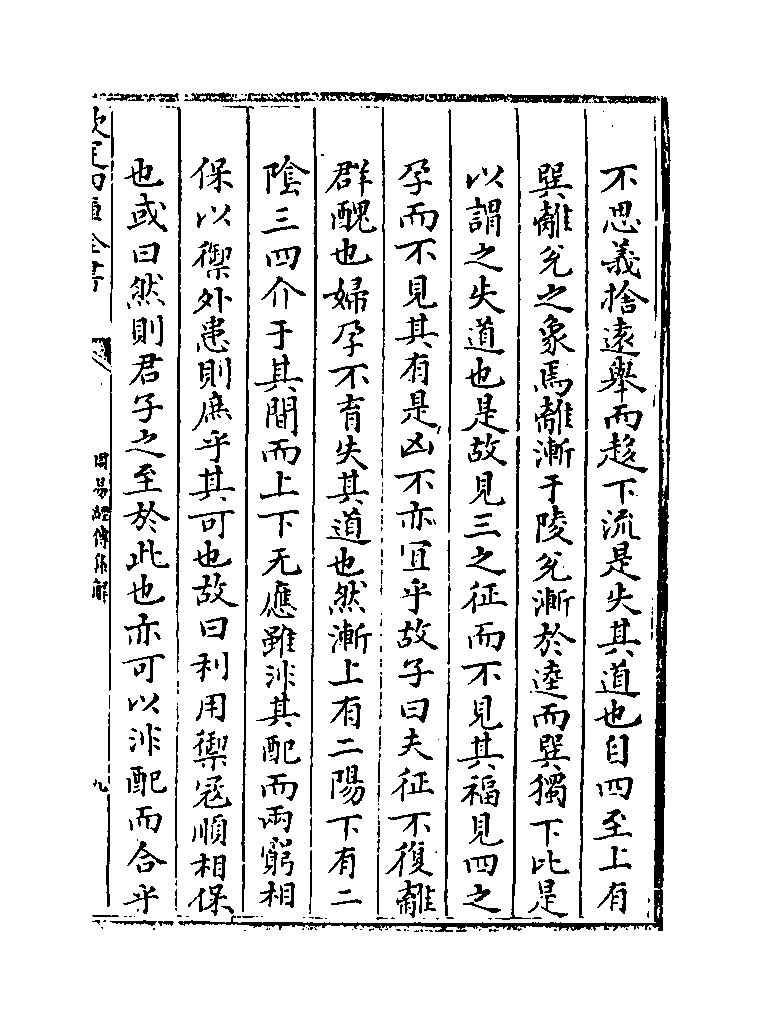 不思義捨遠舉而趍下流是失其道也自四至上有
巽離兊之象焉離漸于陵兊漸於逵而巽獨下比是
以謂之失道也是故見三之征而不見其福見四之
孕而不見其有是凶不亦宜乎故子曰夫征不復離
群醜也婦孕不育失其道也然漸上有二陽下有二
隂三四介于其間而上下无應雖非其配而兩窮相
保以禦外患則庶乎其可也故曰利用禦冦順相保
也或曰然則君子之至於此也亦可以非配而合乎
欽定四庫全書
周易經傳集解
九